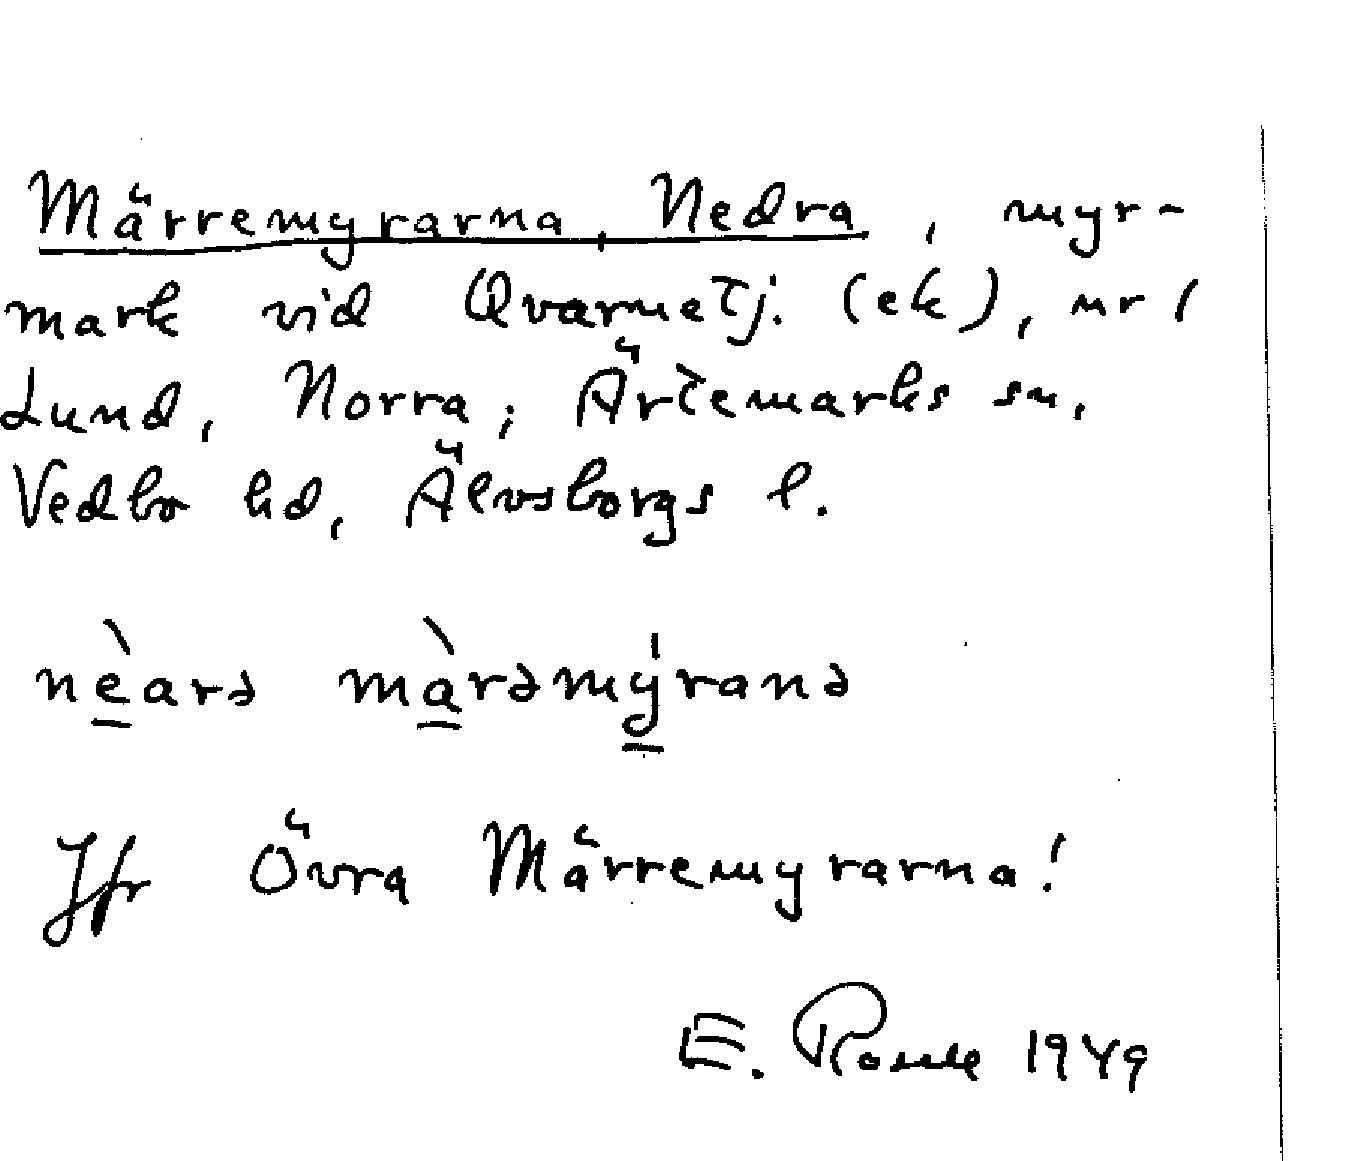 Märremyrarna, Nedra, myr-
mark vid Qvarnetj. (ek), nr 1
Lund, Norra; Ärtemarks sn,
Vedbo hd, Älvsborgs l.
nèarə màrəmýranə
Jfr Övra Märremyrarna!
E. 1949